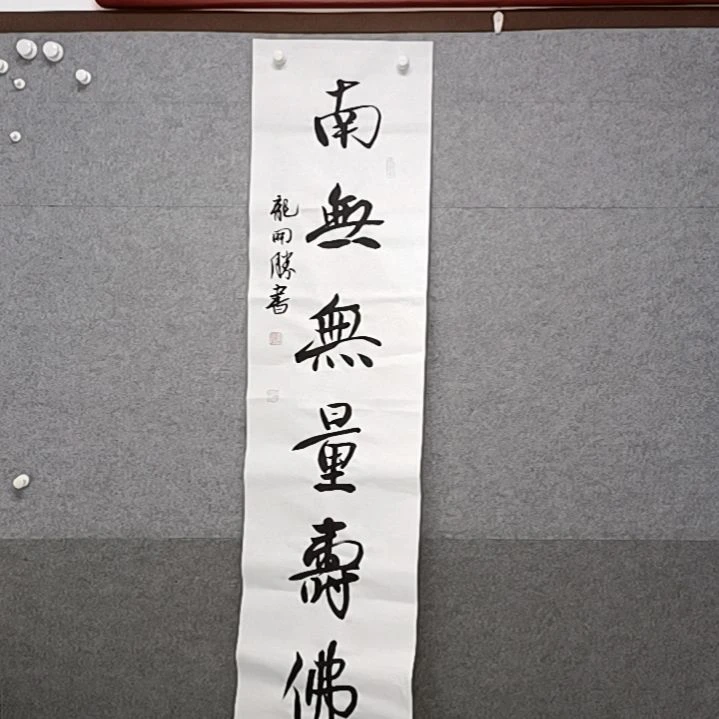 南無無量壽佛
龍開勝書